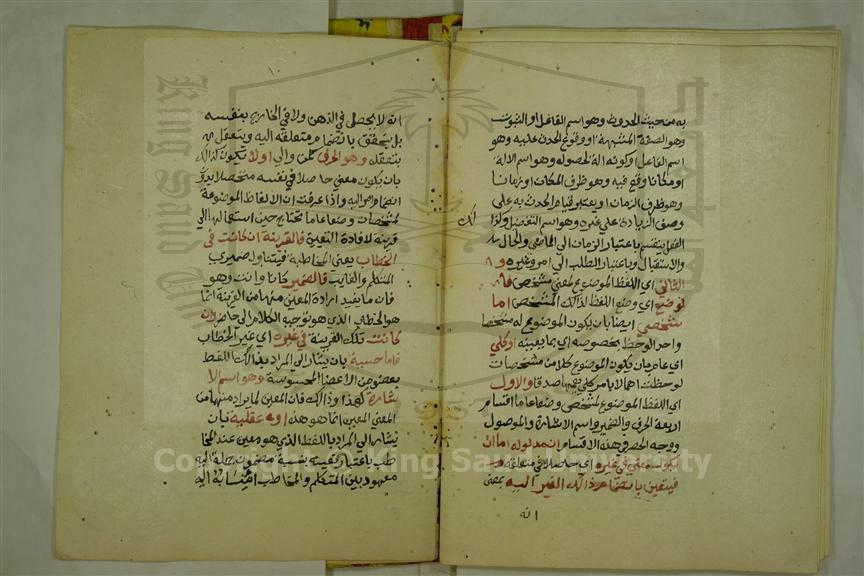 به من حيث الحدوث وهو اسم الفاعل او الثبوت
وهو الصفة المشبهة او وقوع الحدث عليه وهو
اسم الفاعل وكونه الة لحصوله وهو اسم الالة
او مكانا وقع فيه وهو ظرف المكان او زمانا
وهو ظرف الزمان او يعتبر قيام الحدث به على
وصف الزيادة على غيره وهو اسم التفضيل وكذا
الفعل ينقسم باعتبار الزمان الى الماضي والحال
والاستقبال وباعتبار الطلب الى امر وغيره
الثاني اي اللفظ الموضوع لمعنى مشخص
فوضع اي وضع اللفظ لذالك المشخص اما
مشخصي ايضا بان يكون الموضوع له مشخصا
واحدا لوحظ بخصوصه اي بما يعينه او كلي
اي عام بان يكون الموضوع كلا من مشخصات
لوحظت اجمالا بامر كلي يعمها صدقا والاول
اي اللفظ الموضوع لمشخص وضعا عاما اقسام
اربعة الحرف والضمير واسم الاشارة والموصول
ووجه الحصر في هذه الاقسام ان مدلوله اما ان
يكون معنى في غيره اي حاصلا في متعلقه
فيتعين بانضمام ذالك الغير اليه بمعنى
انه
انه لا يحصل في الذهن ولا في الخارج بنفسه
بل يتحقق بانضمام متعلقه اليه ويتعقل
بتعقله وهو الحرف كمن والى اولا يكون كذالك
بان يكون معنى حاصلا في نفسه متحصلا بدون
انضمام امر اليه واذا عرفت ان الالفاظ الموضوعة
لمشخصات وضعا عاما تحتاج حين استعمالها الى
قرينة لافادة التعين فالقرينة ان كانت في
الخطاب يعني المخاطبة فيتناول ضميري
المتكلم والغايب فالضمير كانا وانت وهو
فان ما يفيد ارادة المعين منها من القرينة انما
هو الخطاب الذي هو توجيه الكلام الى حاضر وان
كانت تلك القرينة في غيره اي غير الخطاب
فاما حسية بان يشار الى المراد بذالك اللفظ
بعضو من الاعضا المحسوسة وهو اسم الا
شارة كهذا وذالك فان المعين لما يراد منها من
المعنى المعين انما هو هذه او عقلية بان
يشار الى المراد باللفظ الذي هو معين عند المخا
طب باعتبار تعينه بنسبة مضمون جملة اليه
معهود بين المتكلم والمخاطب انتسابه اليه
Copyright © King Saud University
King Saud